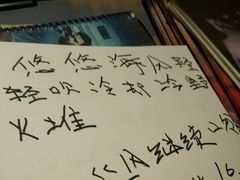 悠悠海风轻
轻吹冷却冷野
火堆
继续
16